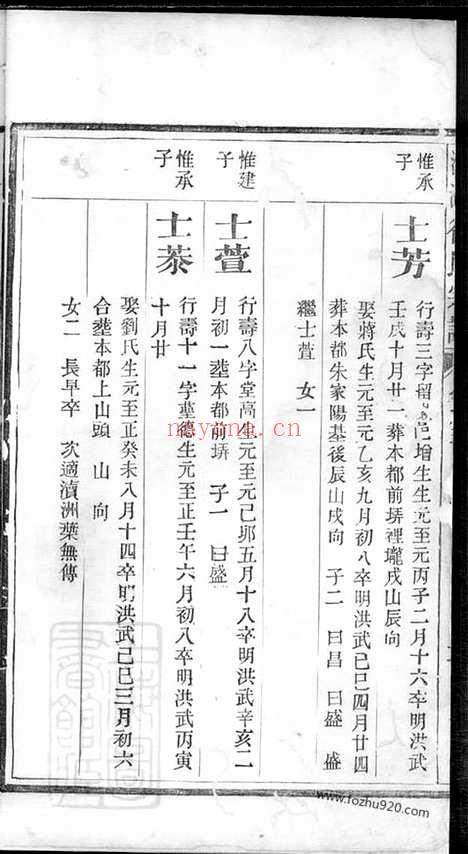 惟承子
士芳
行壽三字留邑增生生元至元丙子二月十六卒明洪武
壬戌十月廿一葬本都前塝裡壠戌山辰向
娶蔣氏生元至元乙亥九月初八卒明洪武己巳四月廿四
葬本都朱家陽基後辰山戌向 子二 曰昌 曰盛 盛
繼士萱 女一
惟建子
士萱
行壽八字堂高生元至元己卯五月十八卒明洪武辛亥二
月初一葬本都前塝 子一 曰盛
惟承子
士恭
行壽十一字德生元至正壬午六月初八卒明洪武丙寅
十月廿
娶劉氏生元至正癸未八月十四卒明洪武己巳三月初六
合葬本都上山頭 山 向
女二 長早卒 次適瀆洲葉無傳
nayona.cn
www.fozhu920.com